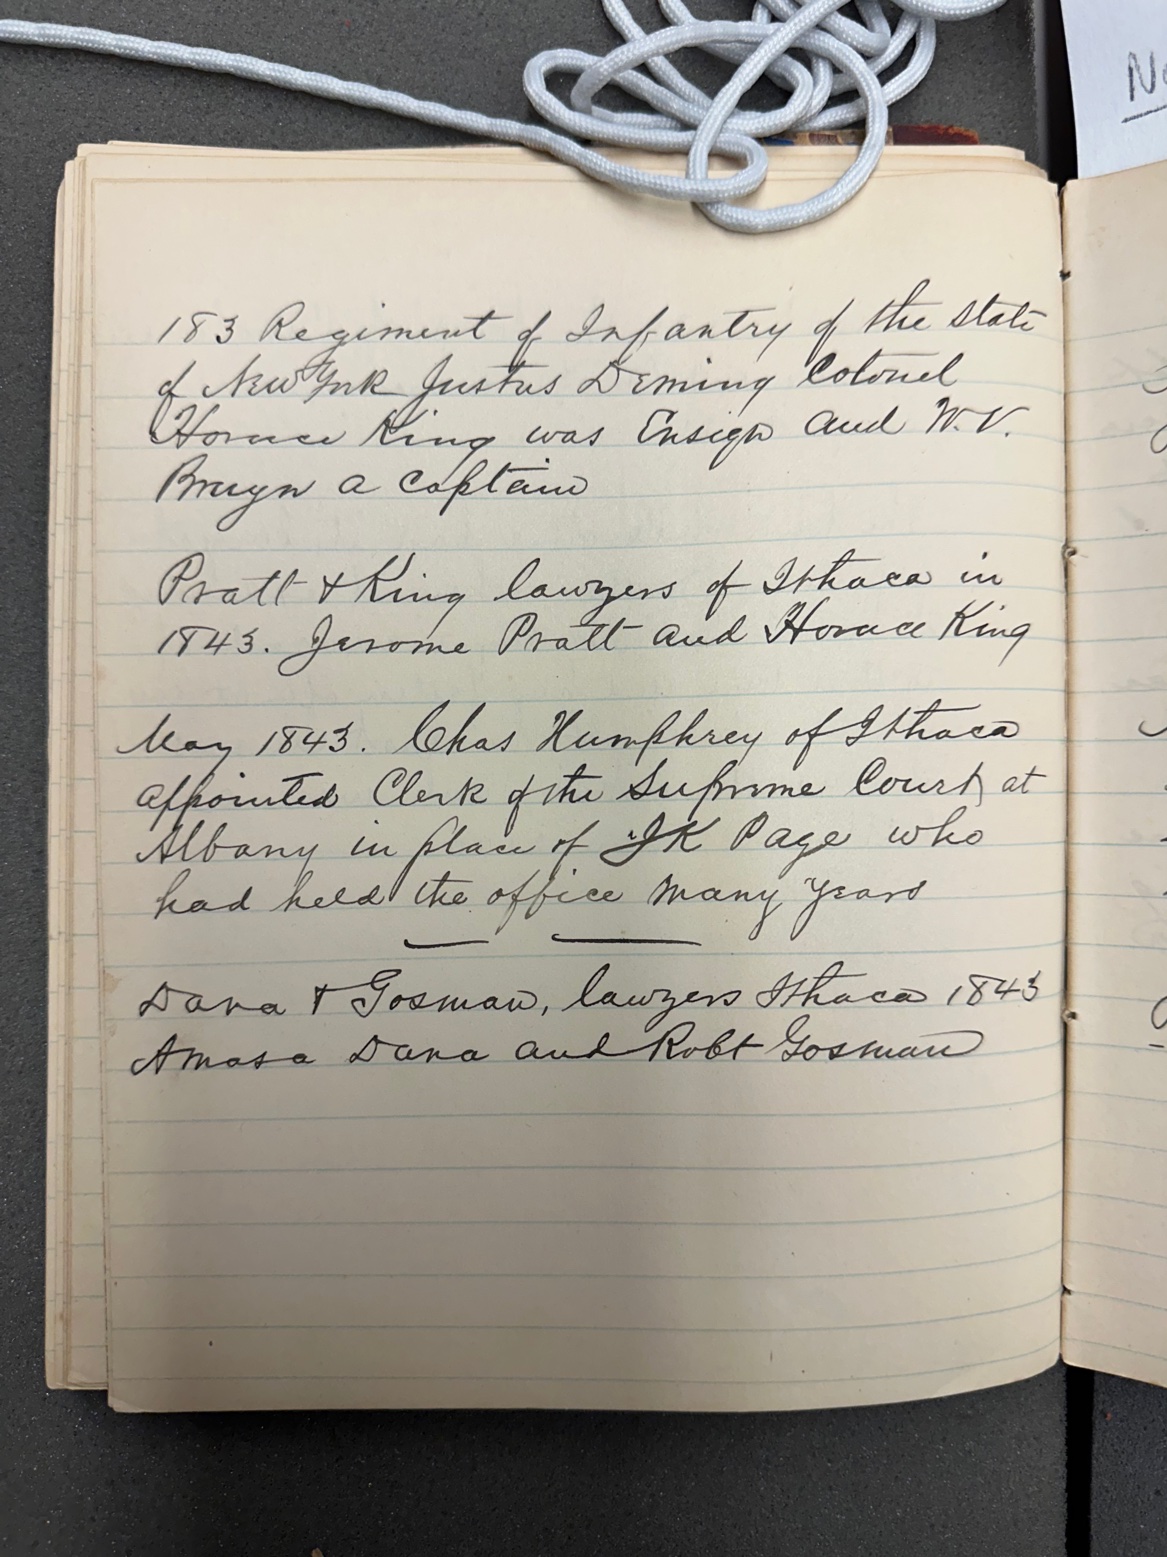 183 Regiment of Infantry of the State
of New York Justus Deming Colonel
Horace King was Ensign and W. V.
Bruyn a Captain
Pratt & King lawyers of Ithaca in
1843. Jerome Pratt and Horace King
May 1843. Chas Humphrey of Ithaca
appointed Clerk of the Supreme Court at
Albany in place of JK Page who
had held the office many years
Dana & Gosman, lawyers Ithaca 1843
Amasa Dana and Robt Gosman